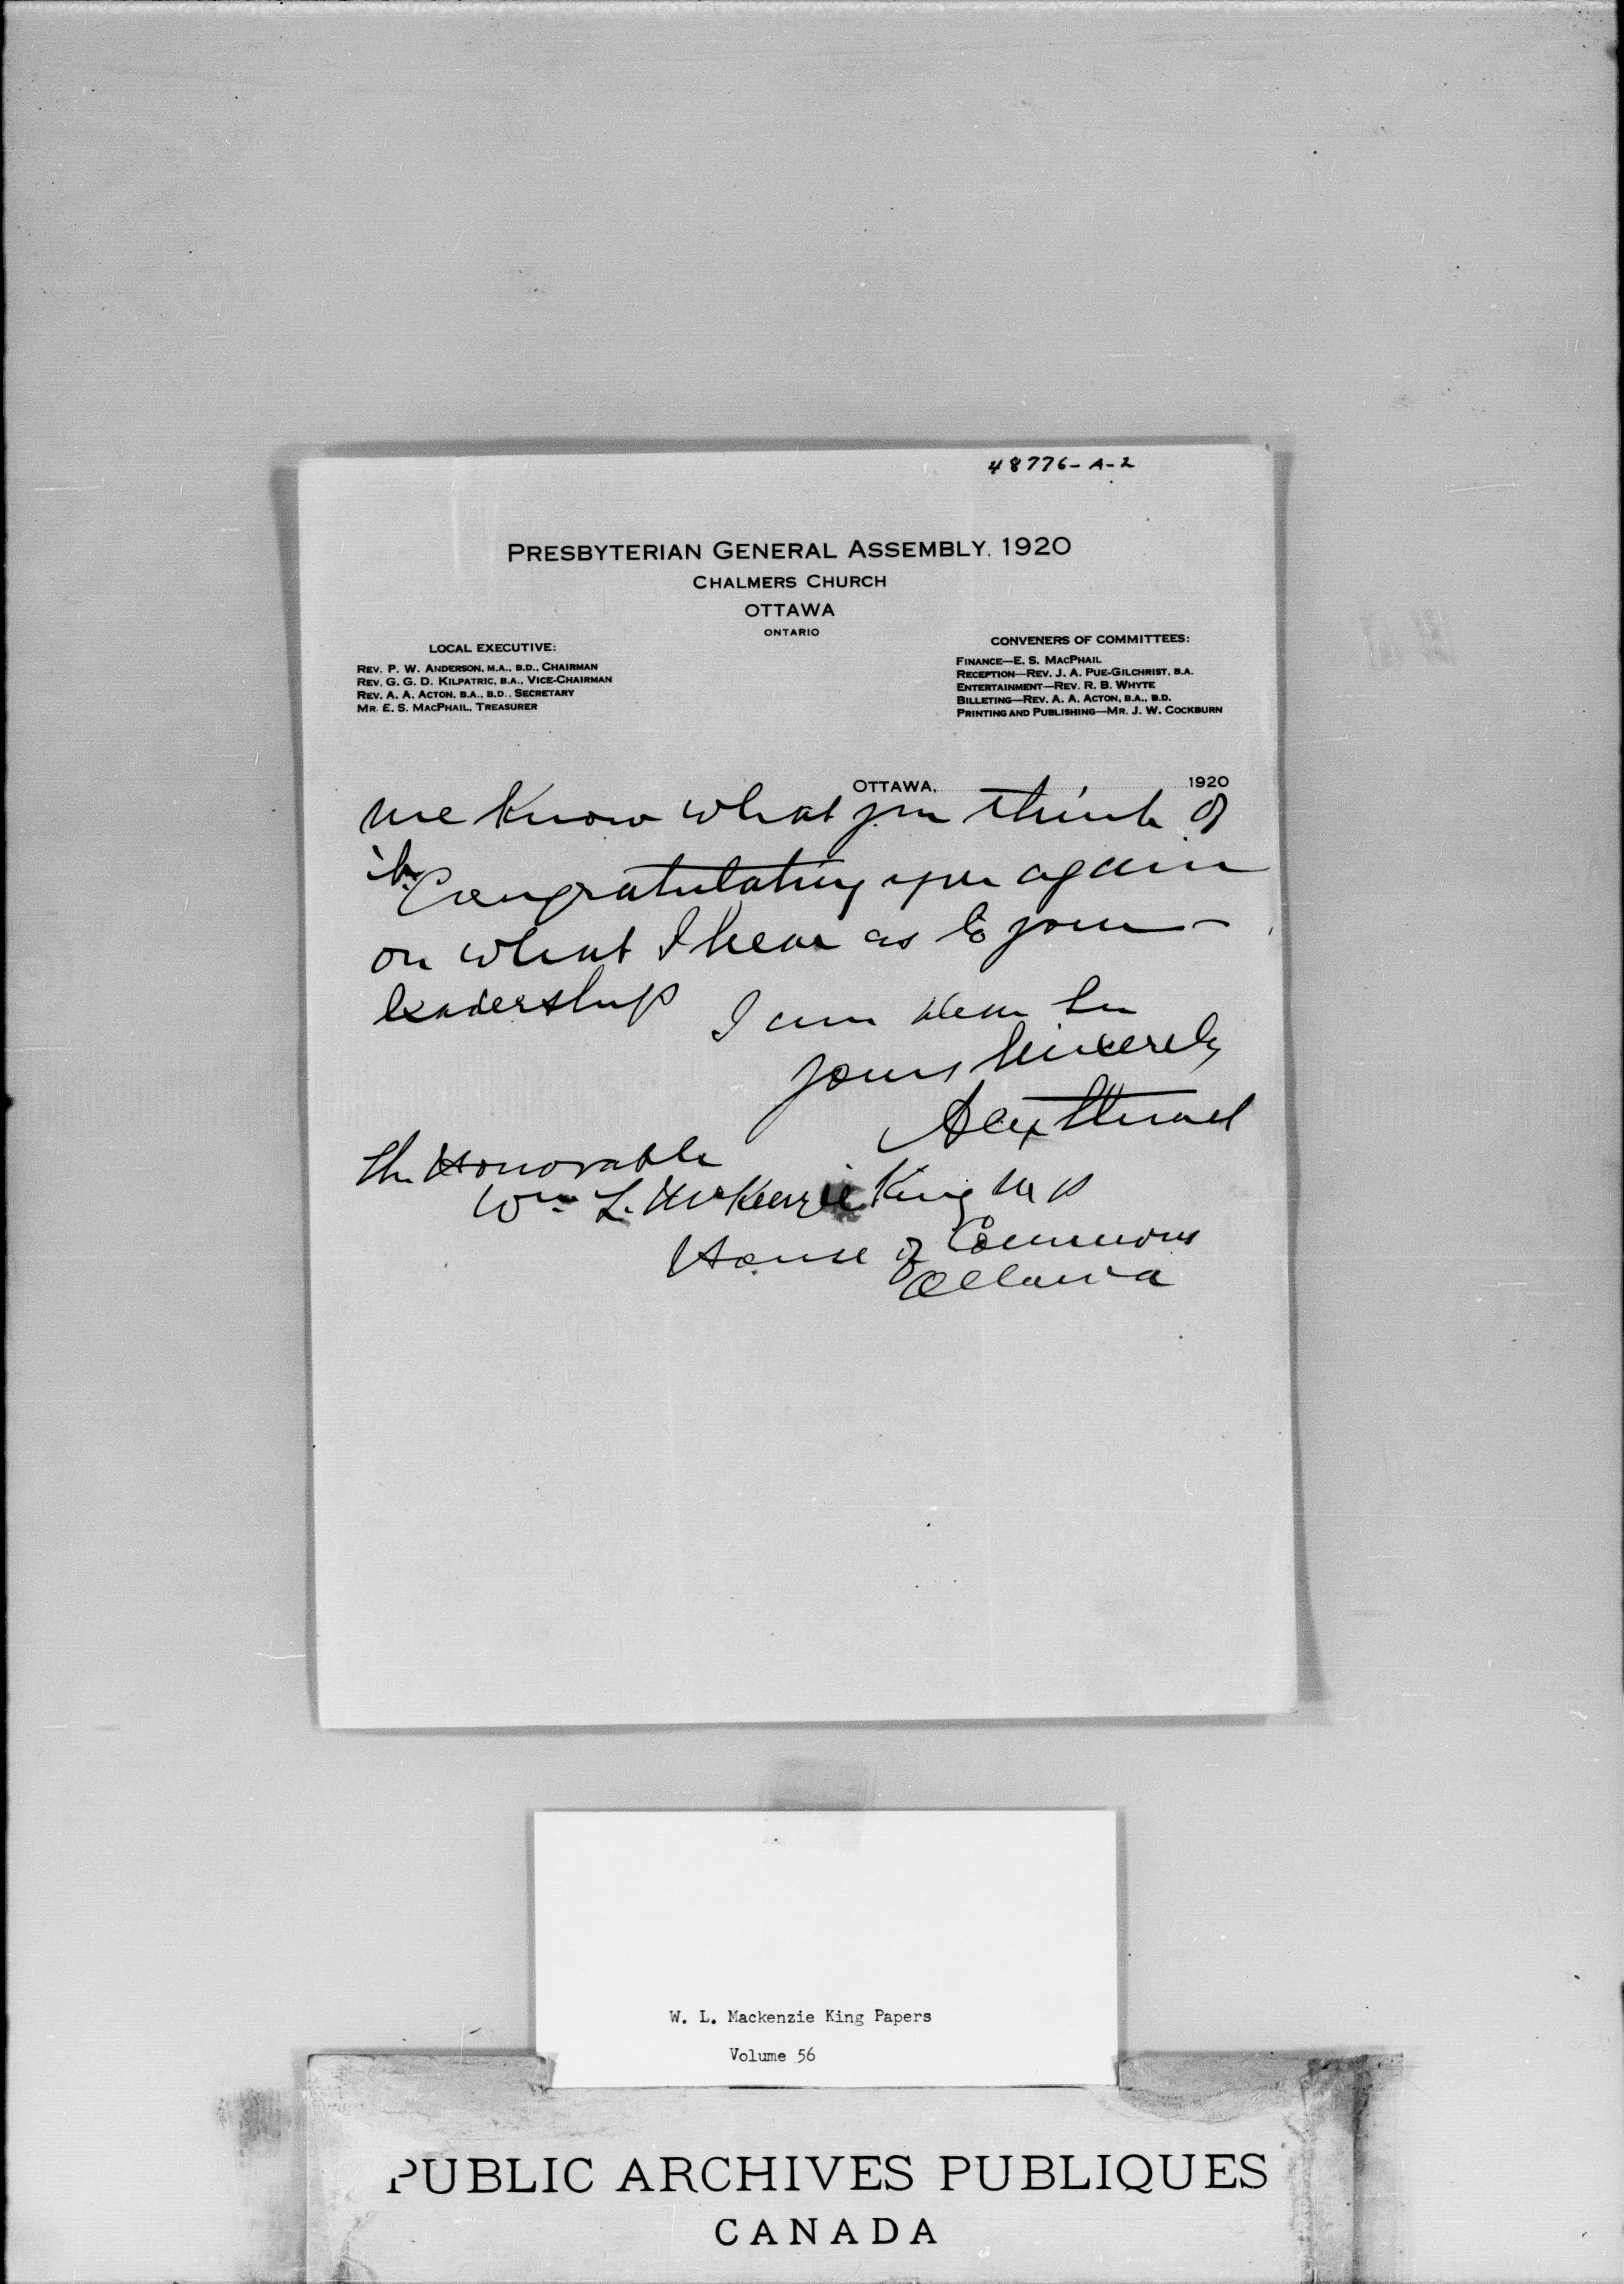 48776-A-2
PRESBYTERIAN GENERAL ASSEMBLY, 1920
CHALMERS CHURCH
OTTAWA
ONTARIO
LOCAL EXECUTIVE:
REV. P. W. ANDERSON, M.A., B.D., CHAIRMAN
REV. G. G. D. KILPATRIC, B.A., VICE-CHAIRMAN
REV. A. A. ACTON, B.A., B.D., SECRETARY
MR. E. S. MACPHAIL, TREASURER
CONVENERS OF COMMITTEES:
FINANCE—E. S. MACPHAIL
RECEPTION—REV. J. A. PUE-GILCHRIST, B.A.
ENTERTAINMENT—REV. R. B. WHYTE
BILLETING—REV. A. A. ACTON, B.A., B.D.
PRINTING AND PUBLISHING—MR. J. W. COCKBURN
OTTAWA, 1920
me know what you think of
it. Congratulating you again
on what I hear as to your
leadership I am Dear Sir
yours sincerely
Alex
The Honorable
Wm L. McKenzie King M P
House of Commons
Ottawa
W. L. Mackenzie King Papers
Volume 56
PUBLIC ARCHIVES PUBLIQUES
CANADA